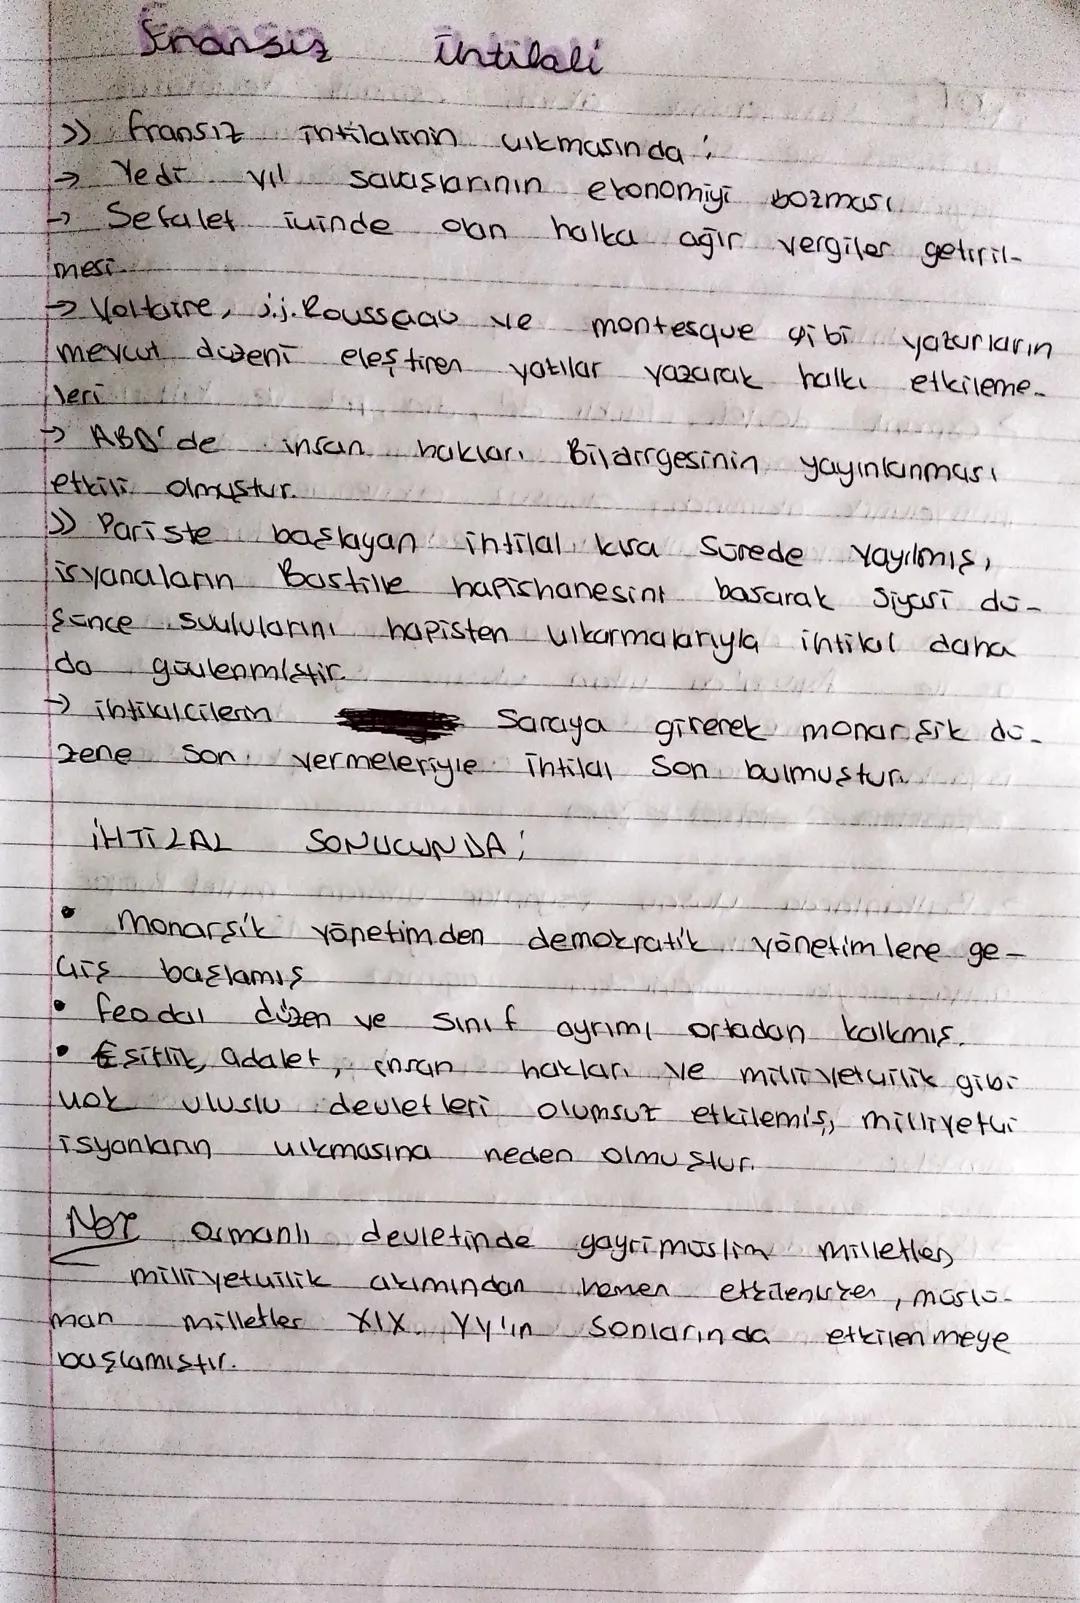 Fransız ihtilali
>> Fransız ihtilalinin çıkmasında;
→ Yedi yıl savaşlarının ekonomiyi bozması
→ Sefalet içinde olan halka ağır vergiler getiril-
mesi
→ Voltaire, j.j. Roussaau ve montesque gibi yazarların
mevcut düzeni eleştiren yazılar yazarak halkı etkileme-
leri
→ ABD'de insan hakları Bildirgesinin yayınlanması
etkili olmuştur.
>> Pariste başlayan ihtilal kısa sürede yayılmış,
isyancıların Bastille hapishanesini basarak siyasi dü-
şünce suçlularını hapisten çıkarmalarıyla ihtilal daha
da güçlenmiştir.
→ ihtilalcilerin Saraya girerek monarşik dü-
zene son vermeleriyle ihtilal son bulmuştur.
İHTİLAL SONUCUNDA;
• Monarşik yönetimden demokratik yönetimlere ge-
çiş başlamış
• feodal düzen ve sınıf ayrımı ortadan kalkmış.
• Eşitlik, adalet, insan hakları ve milliyetçilik gibi
çok uluslu devletleri olumsuz etkilemiş, milliyetçi
isyanların çıkmasına neden olmuştur.
Not Osmanlı devletinde gayrimüslim milletler,
milliyetçilik akımından hemen etkilenirken, müslü-
man milletler XIX. yy'ın sonlarında etkilenmeye
başlamıştır.